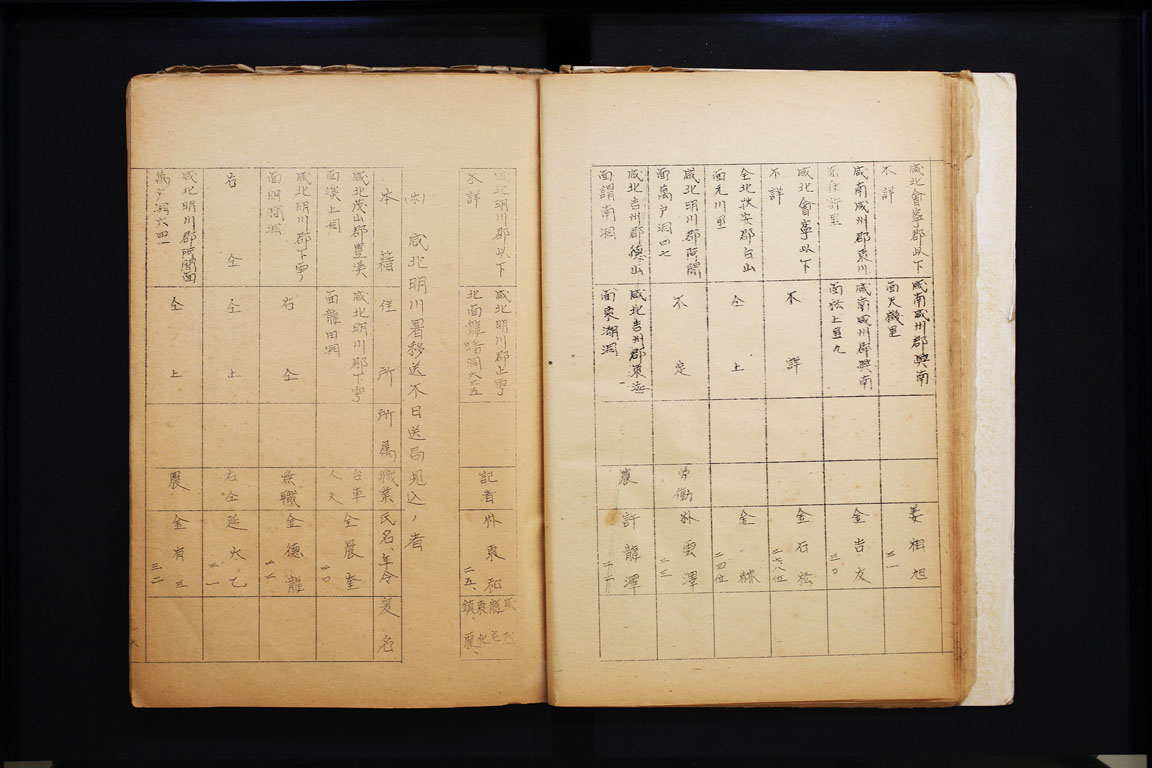 咸北會寧郡以下
不詳
咸南咸州郡興南
面天機里
姜相旭
三一
咸南咸州郡東川
咸南咸州郡興南
面法上里九
金吉友
三〇
咸北會寧以下
不詳
不詳
金石松
二七八位
全北扶安郡白山
面元川里
仝上
金
二四位
咸北明川郡阿間
面萬戶洞四七
不定
労働
朴雲澤
二三
咸北吉州郡德山
面謂南洞
咸北吉州郡東海
面東湖洞
農
許龍澤
二二
咸北明川郡以下
不詳
咸北明川郡上雩
北面
記者
朴東和
二五
(ホ) 咸北明川署移送不日送局見込ノ者
本籍
住所
所属
職業
氏名、年令
変名
咸北茂山郡豊溪
面漢上洞
咸北明川郡下雩
面龍田洞
台車
人夫
仝晨奎
二〇
咸北明川郡下雩
面明澗洞
右仝
無職
金德龍
二二
右仝
仝上
右仝
延火乙
二一
咸北明川郡阿間面
萬戶洞六四一
仝上
農
金有三
三二